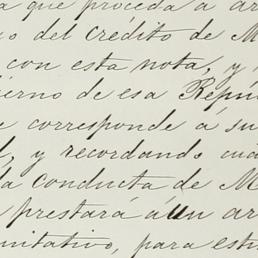 a que proceda a ar
o del crédito de M
con esta nota, y
ierno de esa Repú
e corresponde á su
l, y recordando cuá
la conducta de M
prestará á un ar
nitativo, para estu